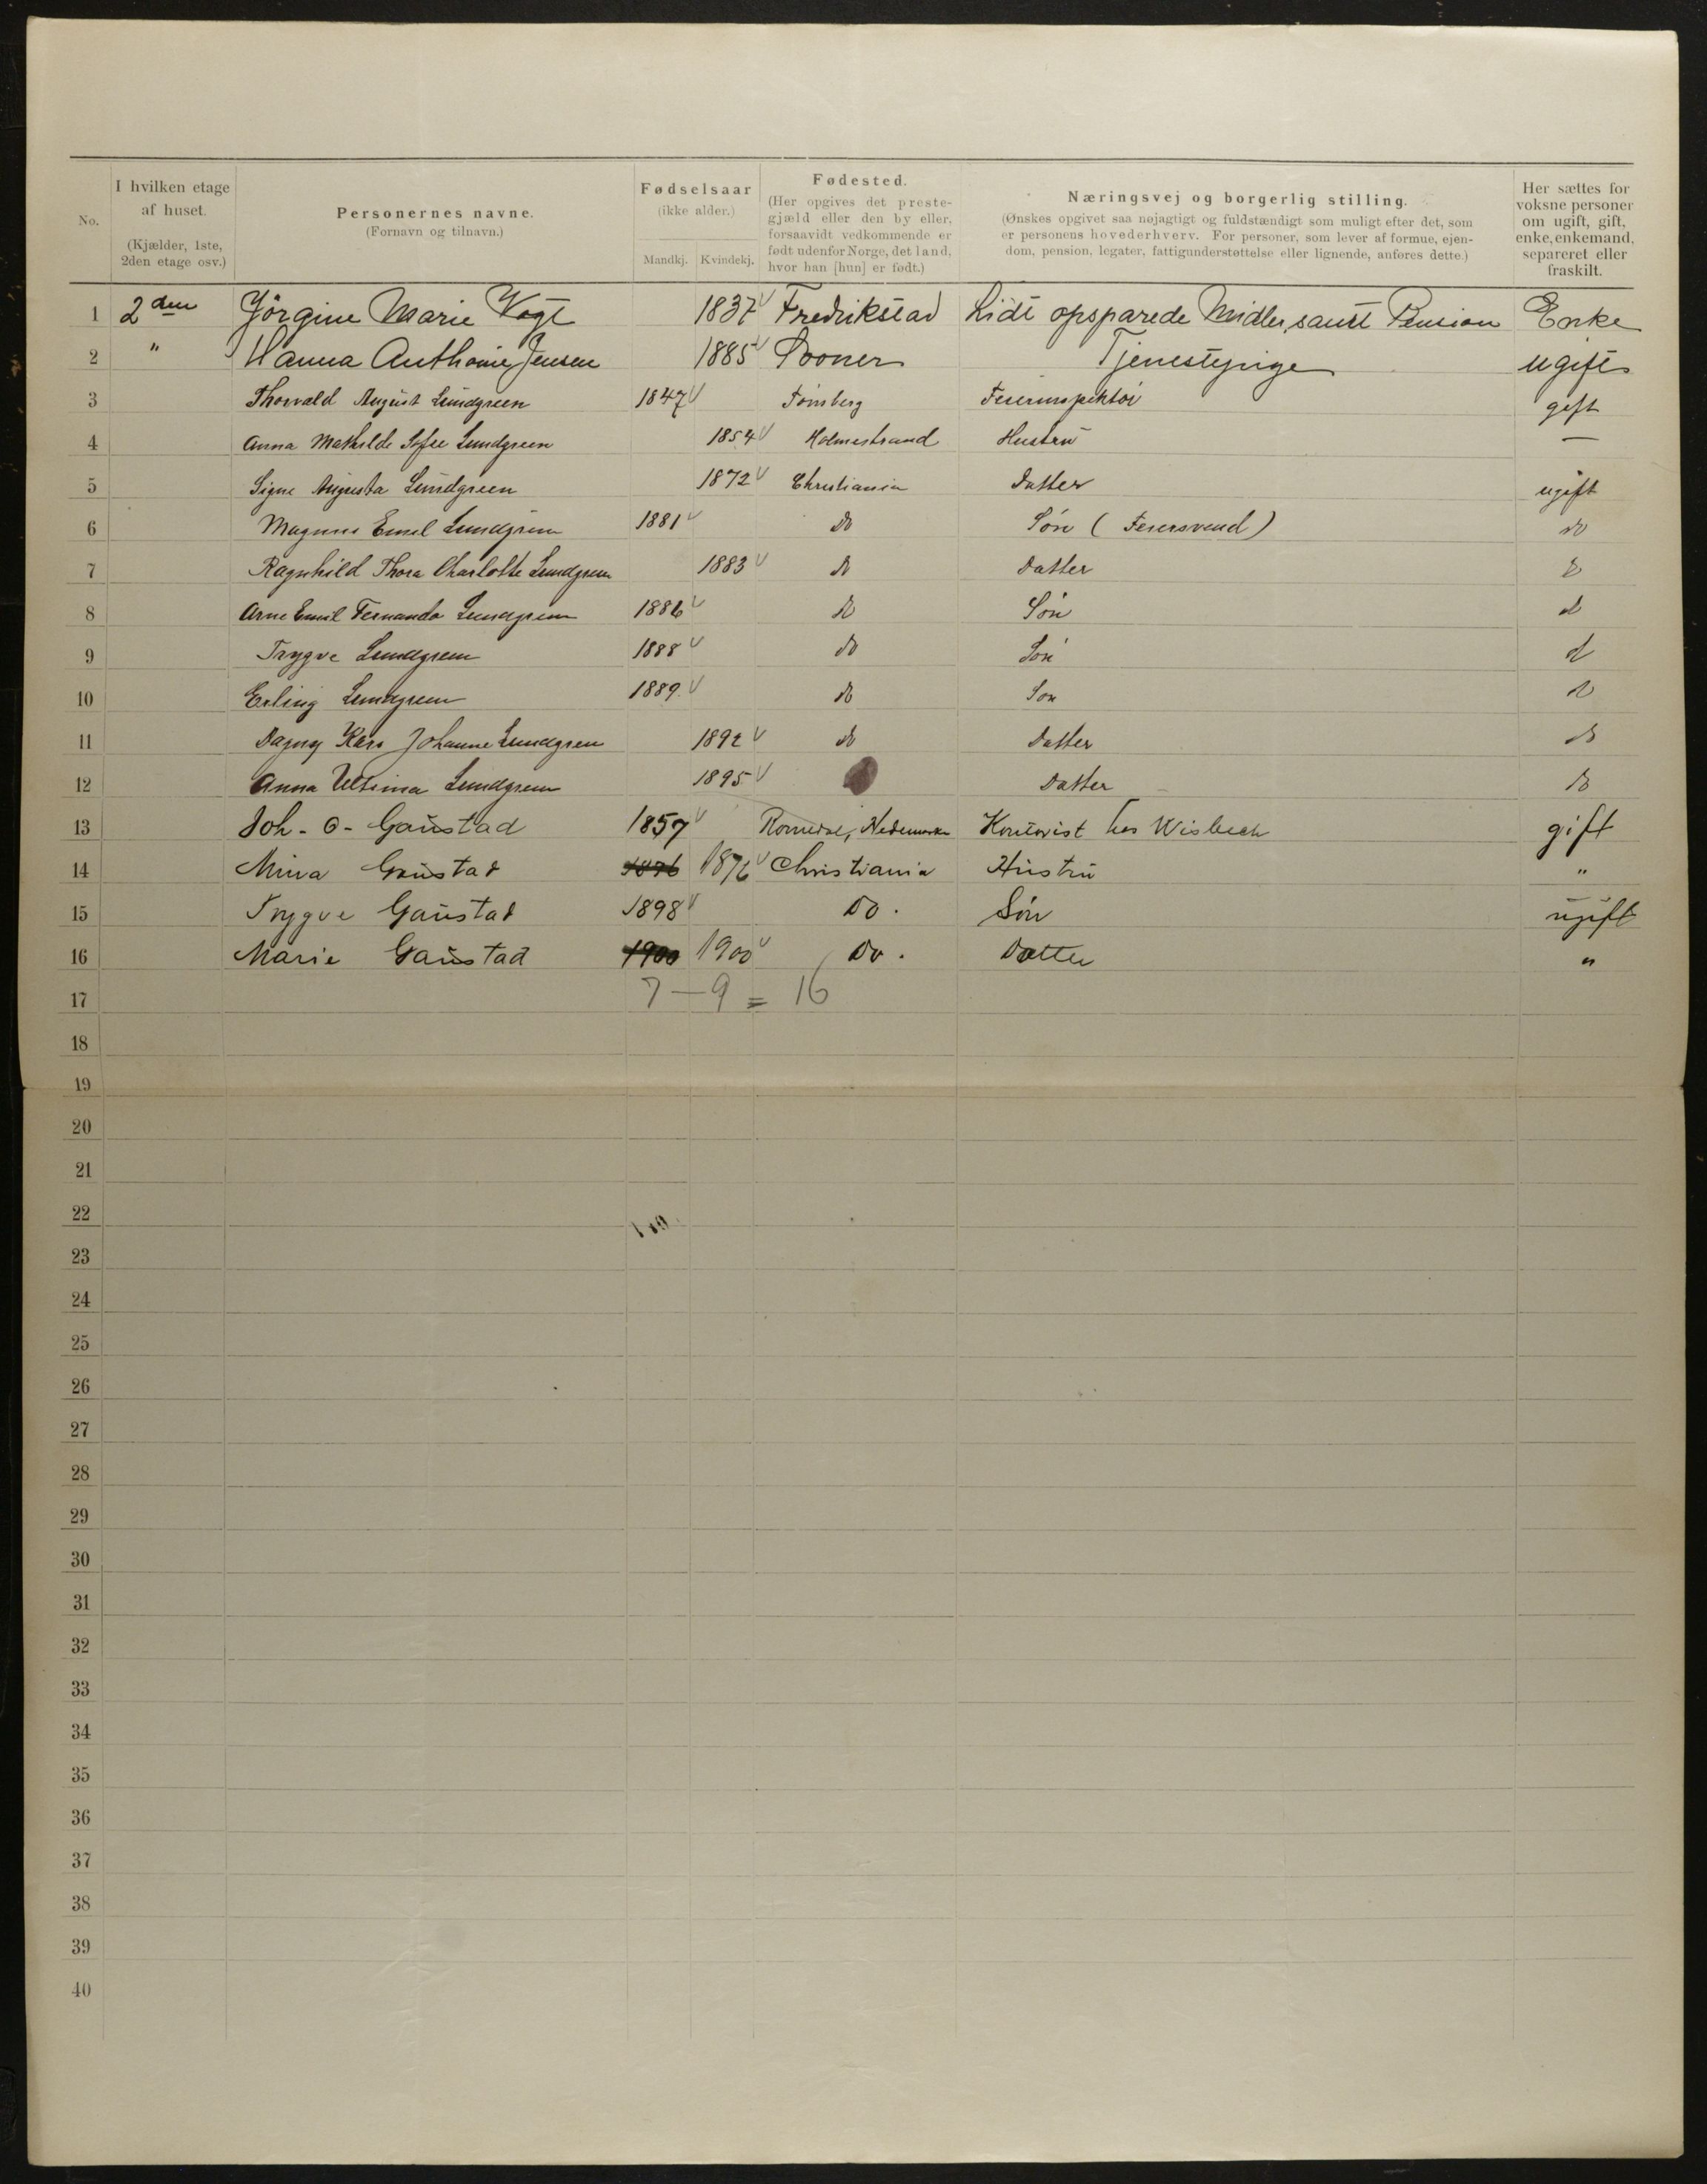 No.
I hvilken etage af huset. (Kjælder, 1ste, 2den etage osv.)
Personernes navne. (Fornavn og tilnavn.)
Fødselsaar (ikke alder.) Mandkj. Kvindekj.
Fødested. (Her opgives det prestegjæld eller den by eller, forsaavidt vedkommende er født udenfor Norge, det land, hvor han [hun] er født.)
Næringsvej og borgerlig stilling. (Ønskes opgivet saa nøjagtigt og fuldstændigt som muligt efter det, som er personens hovederhverv. For personer, som lever af formue, ejendom, pension, legater, fattigunderstøttelse eller lignende, anføres dette.)
Her sættes for voksne personer om ugift, gift, enke, enkemand, separeret eller fraskilt.
1 2den Jörgine Marie Vogt 1837 Fredrikstad Lidt opsparede Midler, samt Pension Enke
2 " Hanna Anthonie Jensen 1885 Tjenestepige ugift
3 Thorvald August Lundgreen 1847 Tønsberg Feierinspektør gift
4 Anna Mathilde Sofie Lundgreen 1854 Holmestrand Hustru —
5 Signe Augusta Lundgreen 1872 Christiania Datter ugift
6 Magnus Emil Lundgreen 1881 do Søn (Feiersvend) do
7 Ragnhild Thora Charlotte Lundgreen 1883 do Datter do
8 Arne Emil Fernando Lundgreen 1886 do Søn do
9 Trygve Lundgreen 1888 do Søn do
10 Erling Lundgreen 1889. do Søn do
11 Dagny Johanne Lundgreen 1892 do Datter do
12 Anna Ultima Lundgreen 1895 Datter do
13 Joh - O - Gaustad 1857 Romedal, Hedemarken Kontorist hos Wisbech gift
14 Mina Gaustad 1876 1876 Christiania Hustru "
15 Trygve Gaustad 1898 Do. Søn ugift
16 Marie Gaustad 1900 1900 Do. Datter "
17 7 — 9 = 16
18
19
20
21
22
23
24
25
26
27
28
29
30
31
32
33
34
35
36
37
38
39
40